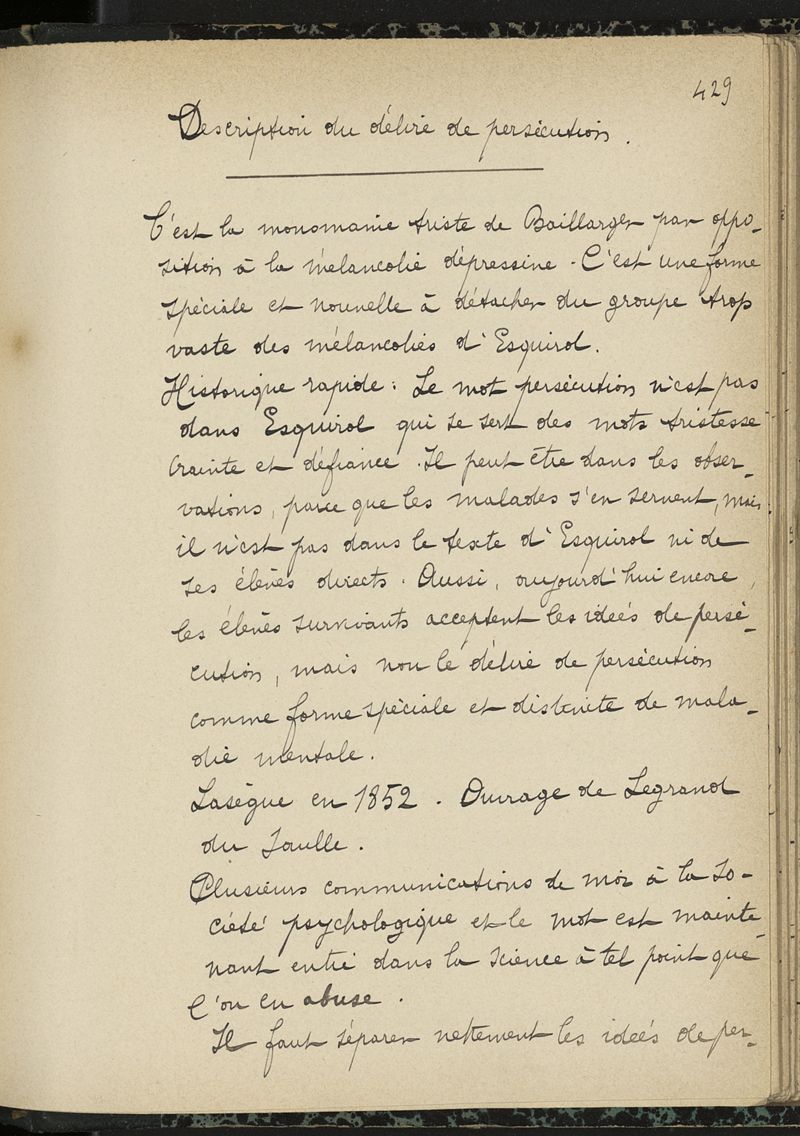 429
Description du délire de persécution.
C'est la monomanie triste de Baillarger par oppo-
sition à la mélancolie dépressive. C'est une forme
spéciale et nouvelle à détacher du groupe trop
vaste des mélancolies d'Esquirol.
Historique rapide : Le mot persécution n'est pas
dans Esquirol qui se sert des mots tristesse
crainte et défiance. Il peut être dans les obser-
vations, parce que les malades s'en servent, mais
il n'est pas dans le texte d'Esquirol ni de
ses élèves directs. Aussi, aujourd'hui encore,
les élèves survivants acceptent les idées de persé-
cution, mais non le délire de persécution
comme forme spéciale et distincte de mala-
die mentale.
Lasègue en 1852. Ouvrage de Legrand
du Saulle.
Plusieurs communications de moi à la So-
ciété psychologique et le mot est mainte-
nant entré dans la science à tel point que
l'on en abuse.
Il faut séparer nettement les idées de per-